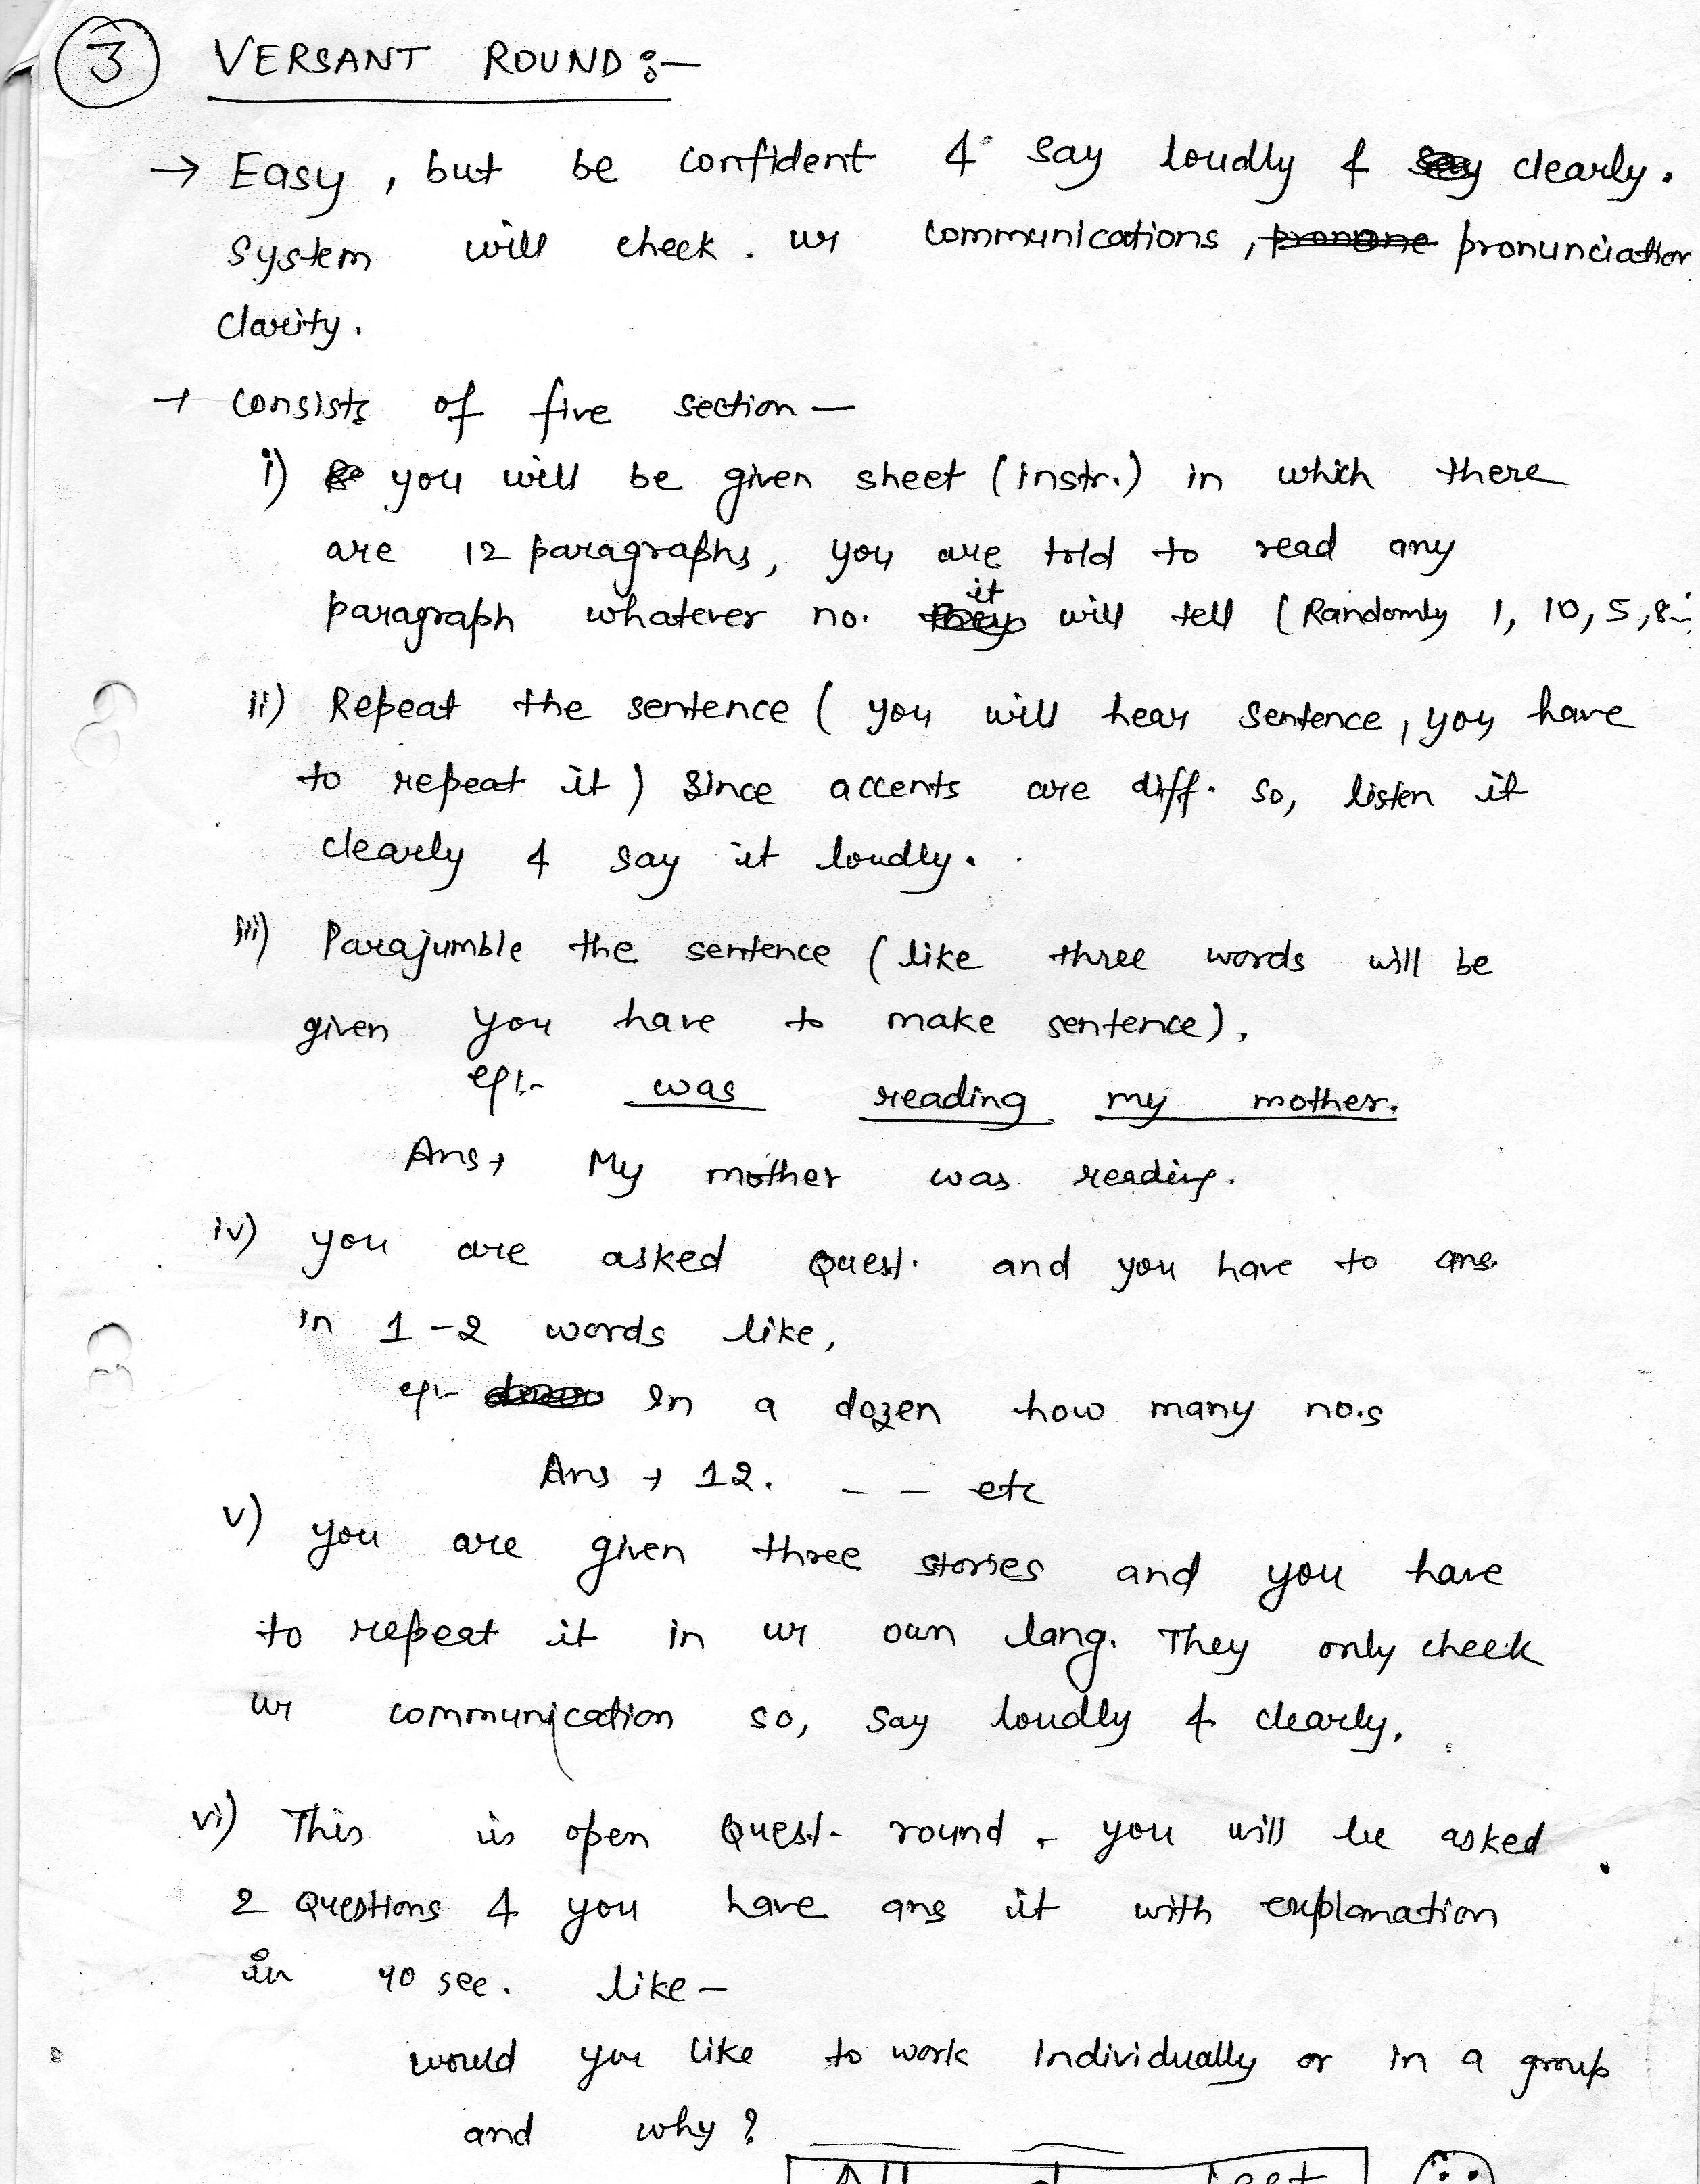 3 VERSANT ROUND :-
→ Easy, but be confident & say loudly & clearly.
System will check. ur communications, pronunciation
clarity.
→ consists of five section -
i) you will be given sheet (instr.) in which there
are 12 paragraphs, you are told to read any
paragraph whatever no. it will tell (Randomly 1, 10, 5, 8--
ii) Repeat the sentence ( you will hear sentence, you have
to repeat it ) Since accents are diff. so, listen it
clearly & say it loudly.
iii) Parajumble the sentence ( like three words will be
given you have to make sentence).
eg:- was reading my mother.
Ans → My mother was reading.
iv) you are asked Quest. and you have to ans.
in 1-2 words like,
eg:- In a dozen how many no.s
Ans → 12. - - etc
v) you are given three stories and you have
to repeat it in ur own lang. They only check
ur communication so, say loudly & clearly.
vi) This is open Quest- round. you will be asked
2 Questions & you have ans it with explanation
in 40 sec. like -
would you like to work individually or in a group
and why?